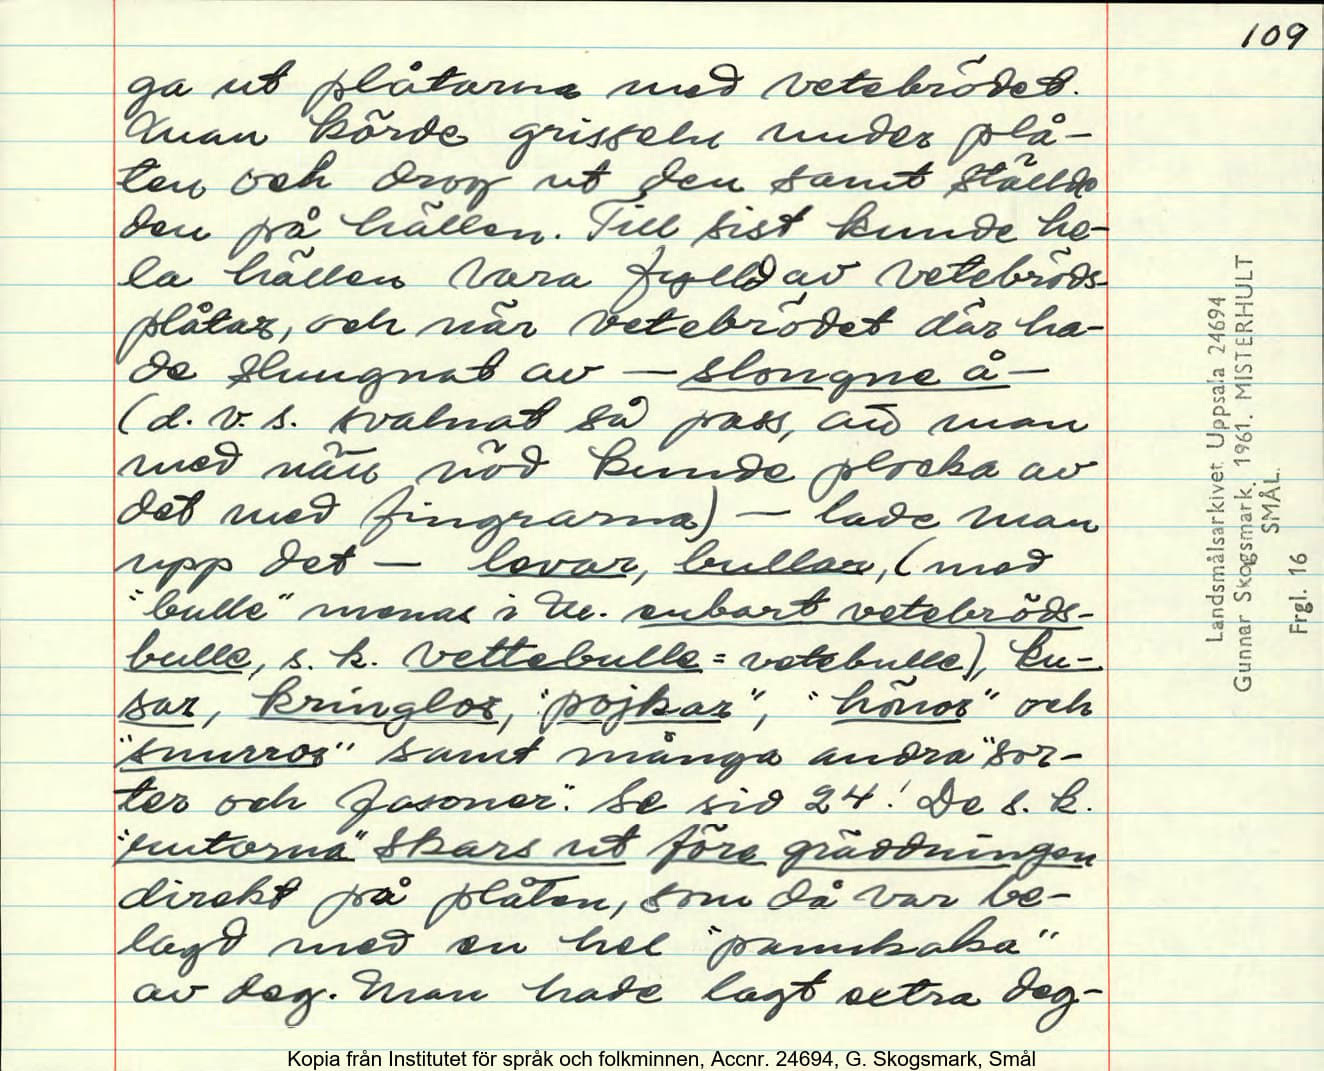 109
ga ut plåtarna med vetebrödet.
Man körde grisseln under plå-
ten och drog ut den samt ställde
den på hällen. Till sist kunde he-
la hällen vara fylld av vetebröds-
plåtar, och när vetebrödet där ha-
de slungnat av — slongne å —
(d. v. s. svalnat så pass, att man
med näu nöd kunde plocka av
det med fingrarna) — lade man
upp det — levar, bullar, (med
"bulle" menas i M. enbart vetebröds-
bulle, s. k. vettebulle = vetebulle), ku-
sar, kringlor, "pojkar", "hönor" och
"snurror" samt många andra "sor-
ter och fasoner". Se sid 24! De s. k.
"rutorna" skars ut före gräddningen
direkt på plåten, som då var be-
lagd med en hel "pannkaka"
av deg. Man hade lagt extra deg-
Landsmålsarkivet Uppsala 24694
Gunnar Skogsmark. 1961. MISTERHULT
SMÅL.
Frgl. 16
Kopia från Institutet för språk och folkminnen, Accnr. 24694, G. Skogsmark, Smål